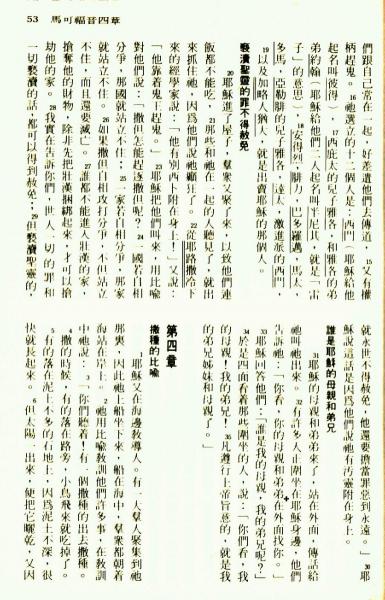 53 馬可福音四章
們跟自己常在一起，好差遣他們去傳道，15又有權
柄趕鬼。16祂選立的十二個人是：西門（耶穌給他
起名叫彼得），17西庇太的兒子雅各，和雅各的弟
弟約翰（耶穌給他們二人起名叫半尼其，就是「雷
子」的意思），18安得烈，腓力，巴多羅邁，馬太，
多馬，亞勒腓的兒子雅各，達太，激進派的西門，
19以及加略人猶大，就是出賣耶穌的那個人。
褻瀆聖靈的罪不得赦免
20耶穌進了屋子，羣衆又聚了來，以致他們連
飯都不能吃，21那些和祂在一起的人聽見了，就出
來抓住祂，因爲他們說祂癲狂了。22從耶路撒冷下
來的經學家說：「他有別西卜附在身上！」又說：
「他靠着鬼王趕鬼。」23耶穌把他們叫來，用比喻
對他們說：「撒但怎能趕逐撒但呢？24一國若自相
分爭，那國就站立不住；25一家若自相分爭，那家
就站立不住。26如果撒但自相攻打分爭，不但站立
不住，而且還要滅亡。27誰都不能進入壯漢的家，
搶奪他的財物，除非先把壯漢捆綁起來，才可以搶
劫他的家。28我實在告訴你們，世人一切的罪和
一切褻瀆的話，都可以得到赦免；29但褻瀆聖靈的，
就永世不得赦免，他還要擔當罪惡到永遠。」30耶
穌說這話是因爲他們說祂有污靈附在身上。
誰是耶穌的母親和弟兄
31耶穌的母親和弟弟來了，站在外面，傳話給
祂叫祂出來。32有許多人正圍坐在耶穌身邊，他們
告訴祂：「你看，你的母親和弟弟在外面找你。」
33耶穌回答他們：「誰是我的母親，我的弟兄呢？」
34於是四面看着那些圍坐的人，說：「你們看，我
的母親！我的弟兄！35凡遵行上帝旨意的，就是我
的弟兄姊妹和母親了。」
第四章
撒種的比喻
1耶穌又在海邊教導人。有一大羣人聚集到祂
那裏，因此祂上船坐下來，船在海中，羣衆都朝着
海站在岸上。2祂用比喻教訓他們許多事，在教訓
中祂說：3「你們聽着！有一個撒種的出去撒種。
4撒的時候，有的落在路旁，小鳥飛來就吃掉了。
5有的落在泥土不多的石地上，因爲泥土不深，很
快就長起來。6但太陽一出來，便把它曬乾，又因